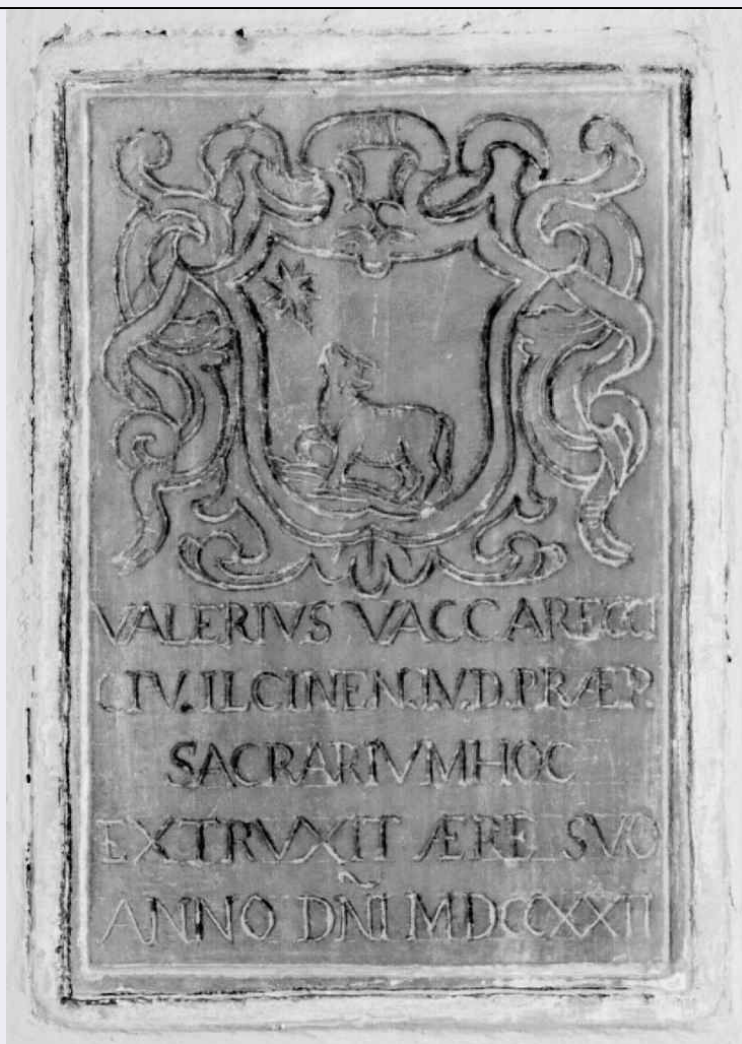 VALERIVS VACCARECCI
CIV. ILCINEN. IV. D. PRÆP.
SACRARIVM HOC
EXTRVXIT ÆRE SVO
ANNO DÑI MDCCXXII